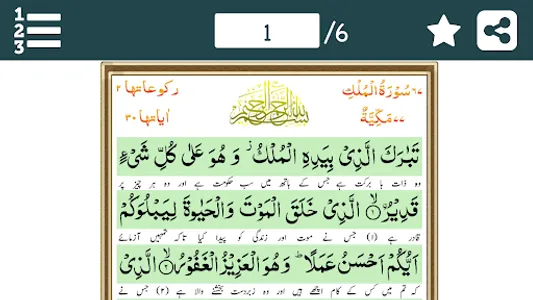 1
2
3
1 /6
۶۷ سُوْرَةُ الْمُلْكِ
رکوعاتها ۲
مَكِّيَّةٌ ۷۷
اٰیاتها ۳۰
بسم الله الرحمن الرحيم
تَبٰرَكَ الَّذِیْ بِیَدِهِ الْمُلْكُ ؗ وَ هُوَ عَلٰى كُلِّ شَیْءٍ
وہ ذات با برکت ہے جس کے ہاتھ میں سب حکومت ہے اور وہ ہر چیز پر
قَدِیْرُ ۙ﴿۱﴾ الَّذِیْ خَلَقَ الْمَوْتَ وَالْحَیٰوةَ لِیَبْلُوَكُمْ
قادر ہے (۱) جس نے موت اور زندگی کو پیدا کیا تاکہ تمہیں آزمائے
اَیُّكُمْ اَحْسَنُ عَمَلًا ؕ وَهُوَ الْعَزِیْزُ الْغَفُوْرُ ۙ﴿۲﴾ الَّذِیْ
کہ تم میں کس کے کام اچھے ہیں اور وہ زبردست بخشنے والا ہے (۲) جس نے